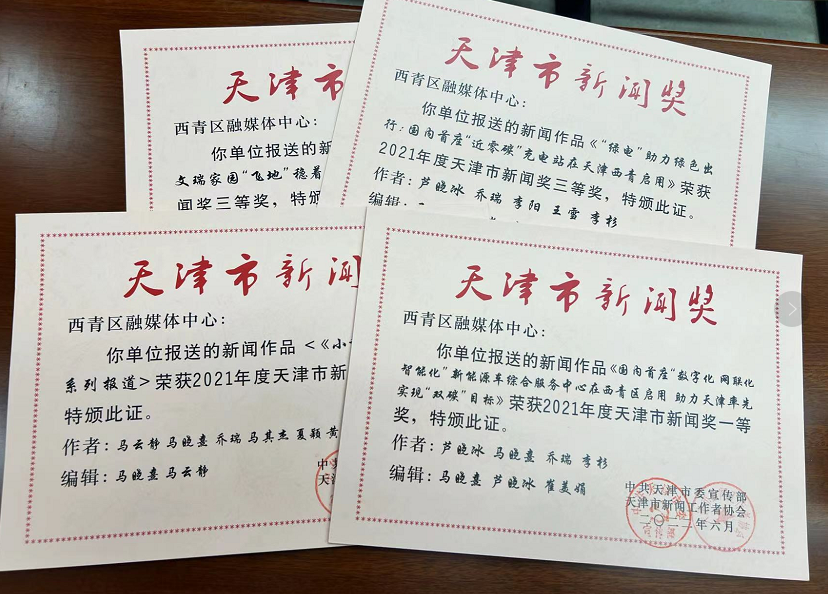 天津市
西青区融媒体中心:
你单位报送的新
文瑞家园“飞地”稳着
闻奖三等奖,特颁
天津市新闻奖
西青区融媒体中心:
你单位报送的新闻作品《“绿电”助力绿色出
行:国内首座“近零碳”充电站在天津西青启用》荣获
2021年度天津市新闻奖三等奖,特颁此证。
作者:芦晓冰 乔瑞 李阳 王雪 李杉
编辑:
天津市新闻
西青区融媒体中心:
你单位报送的新闻作品<《小
系列报道>荣获2021年度天津市新
特颁此证。
作者:马云静 马晓熹 乔瑞 马其杰 夏颖 黄
编辑:马晓熹 马云静
中
天津
天津市新闻奖
西青区融媒体中心:
你单位报送的新闻作品《国内首座“数字化 网联化
智能化”新能源车综合服务中心在西青区启用 助力天津率先
实现“双碳”目标》荣获2021年度天津市新闻奖一等
奖,特颁此证。
作者:芦晓冰 马晓熹 乔瑞 李杉
编辑:马晓熹 芦晓冰 崔美娟
中共天津市委宣传部
天津市新闻工作者协会
二〇二二年六月